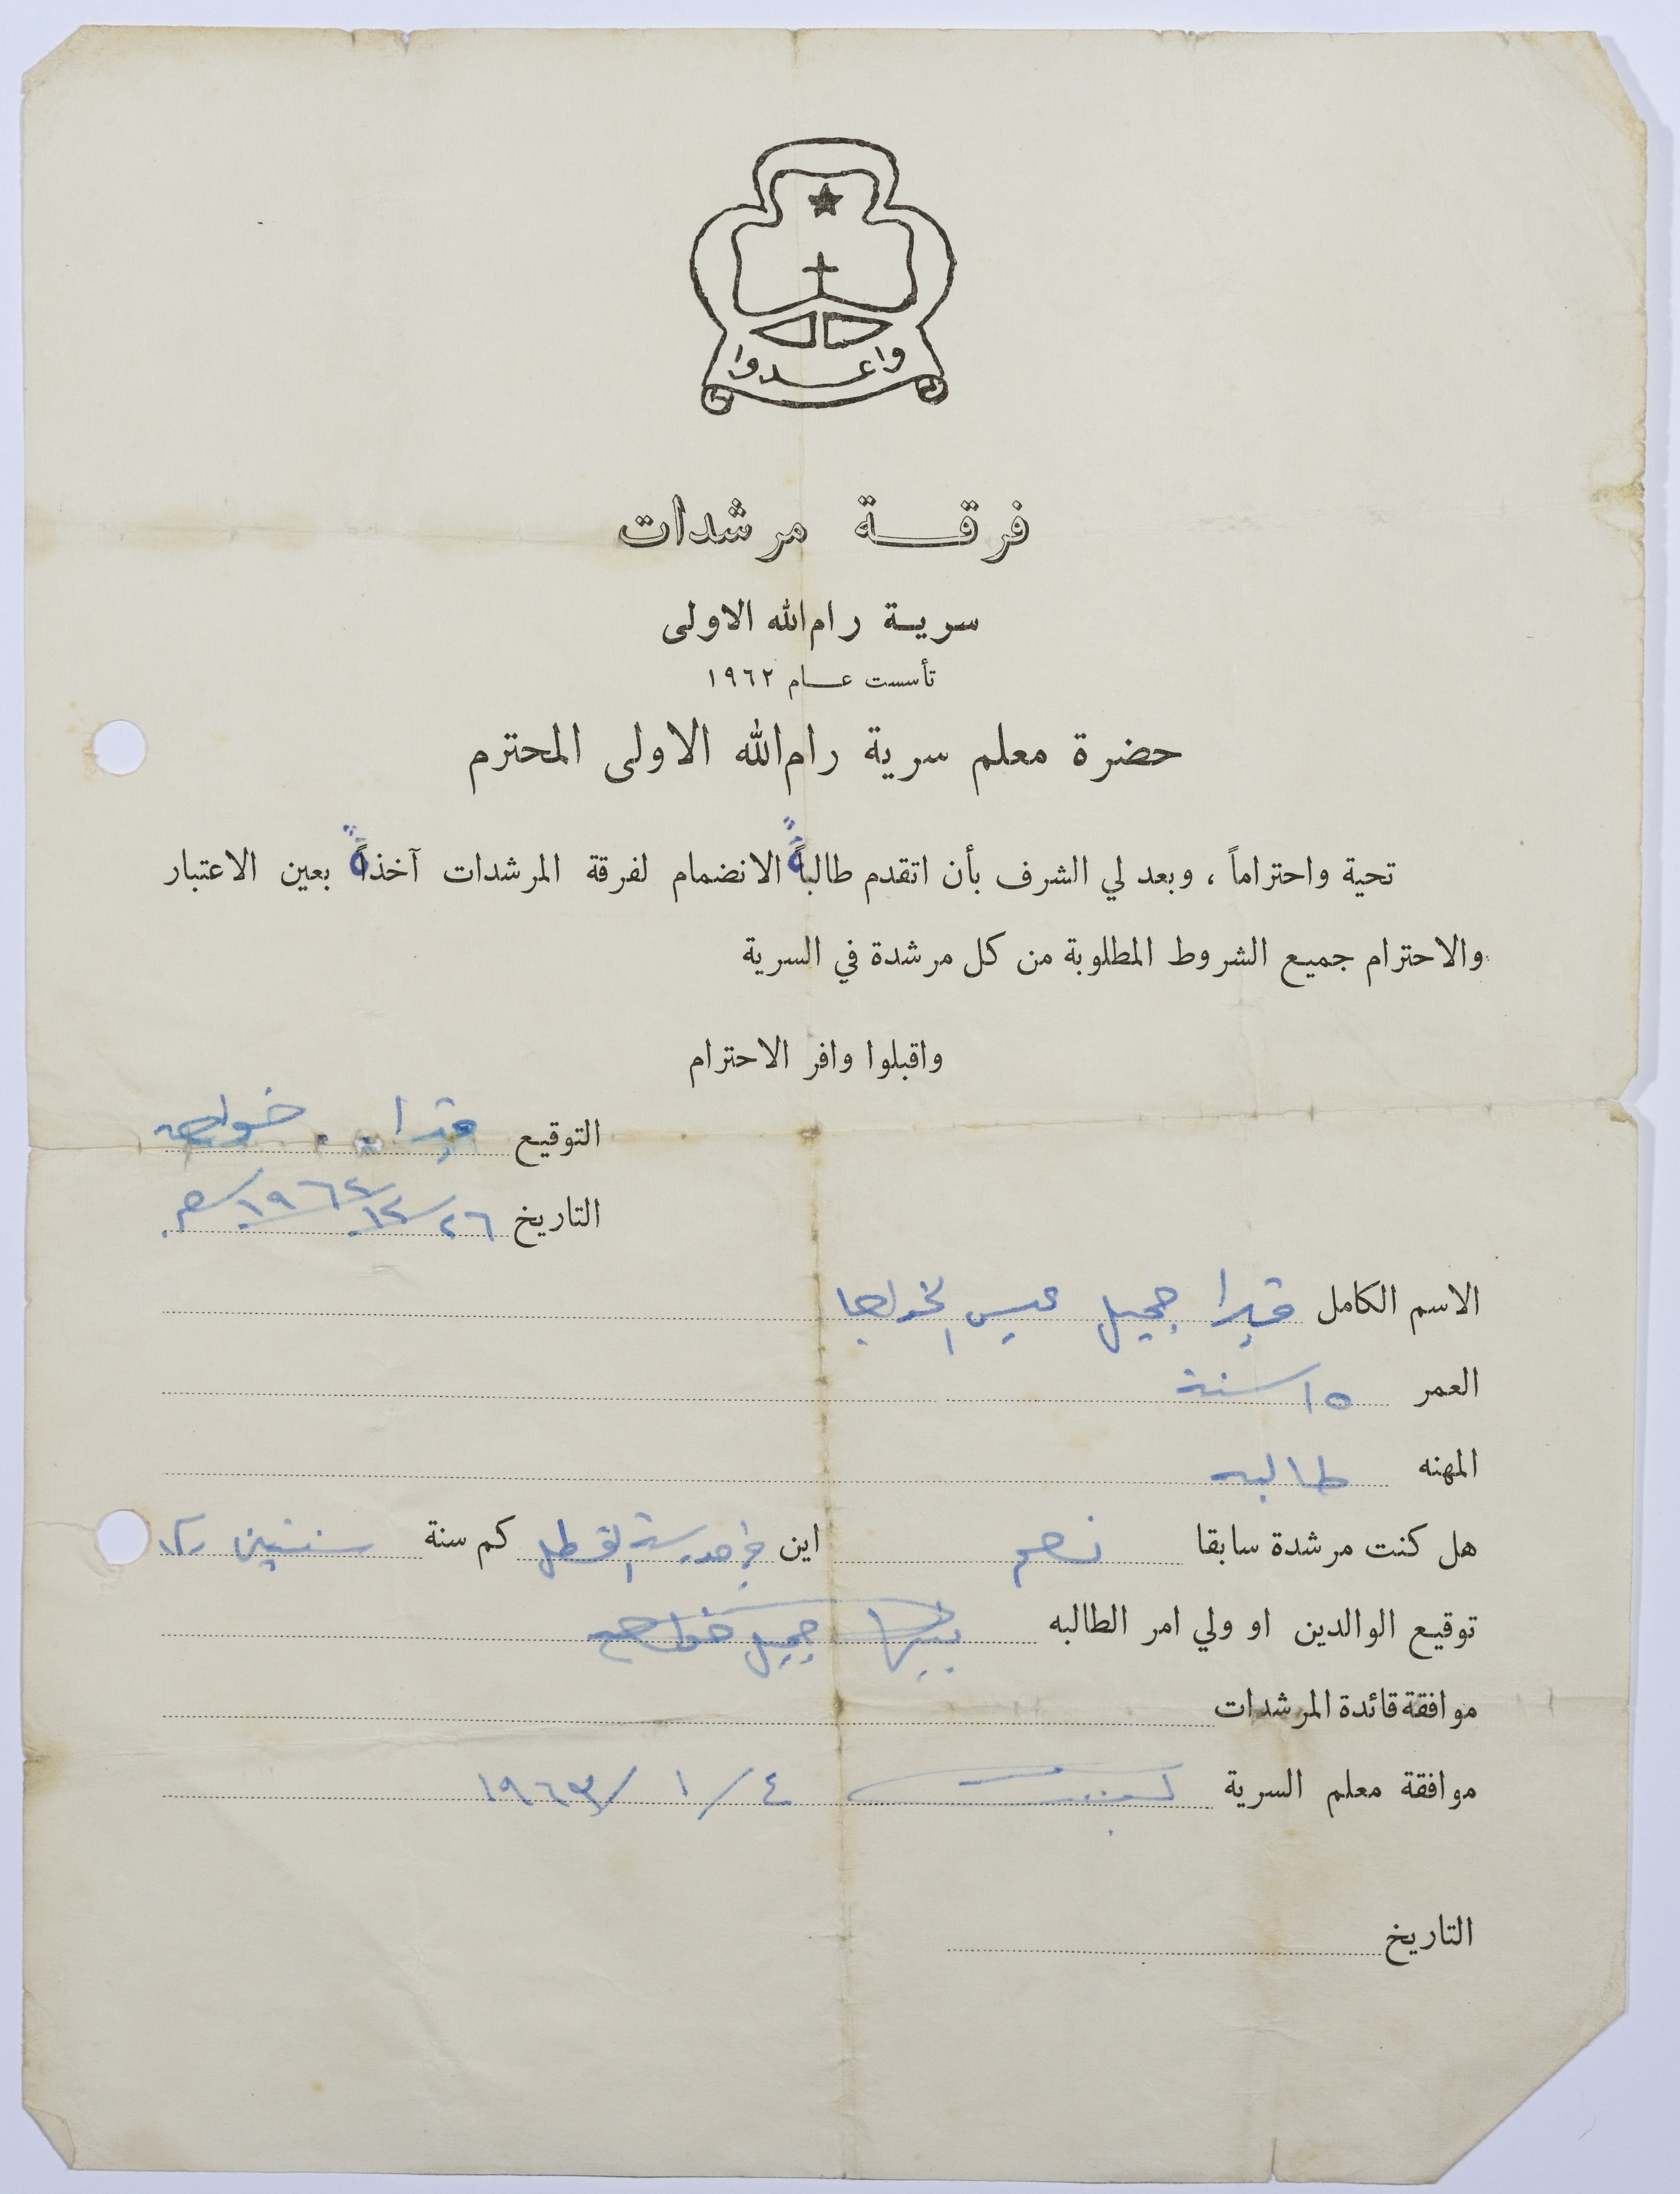 واعدوا
فرقة مرشدات
سرية رام الله الاولى
تأسست عام ١٩٦٢
حضرة معلم سرية رام الله الاولى المحترم
تحية واحتراماً ، وبعد لي الشرف بأن اتقدم طالبةً الانضمام لفرقة المرشدات آخذةً بعين الاعتبار
والاحترام جميع الشروط المطلوبة من كل مرشدة في السرية
واقبلوا وافر الاحترام
التوقيع
التاريخ ٢٦/١٢/١٩٦٢م
الاسم الكامل جميل عيسى الخواجا
العمر ١٥ سنة
المهنه طالبه
هل كنت مرشدة سابقا نعم اين في مدرسة كم سنة سنتين
توقيع الوالدين او ولي امر الطالبه جميل خواجه
موافقة قائدة المرشدات
موافقة معلم السرية ٤/١/١٩٦٣
التاريخ